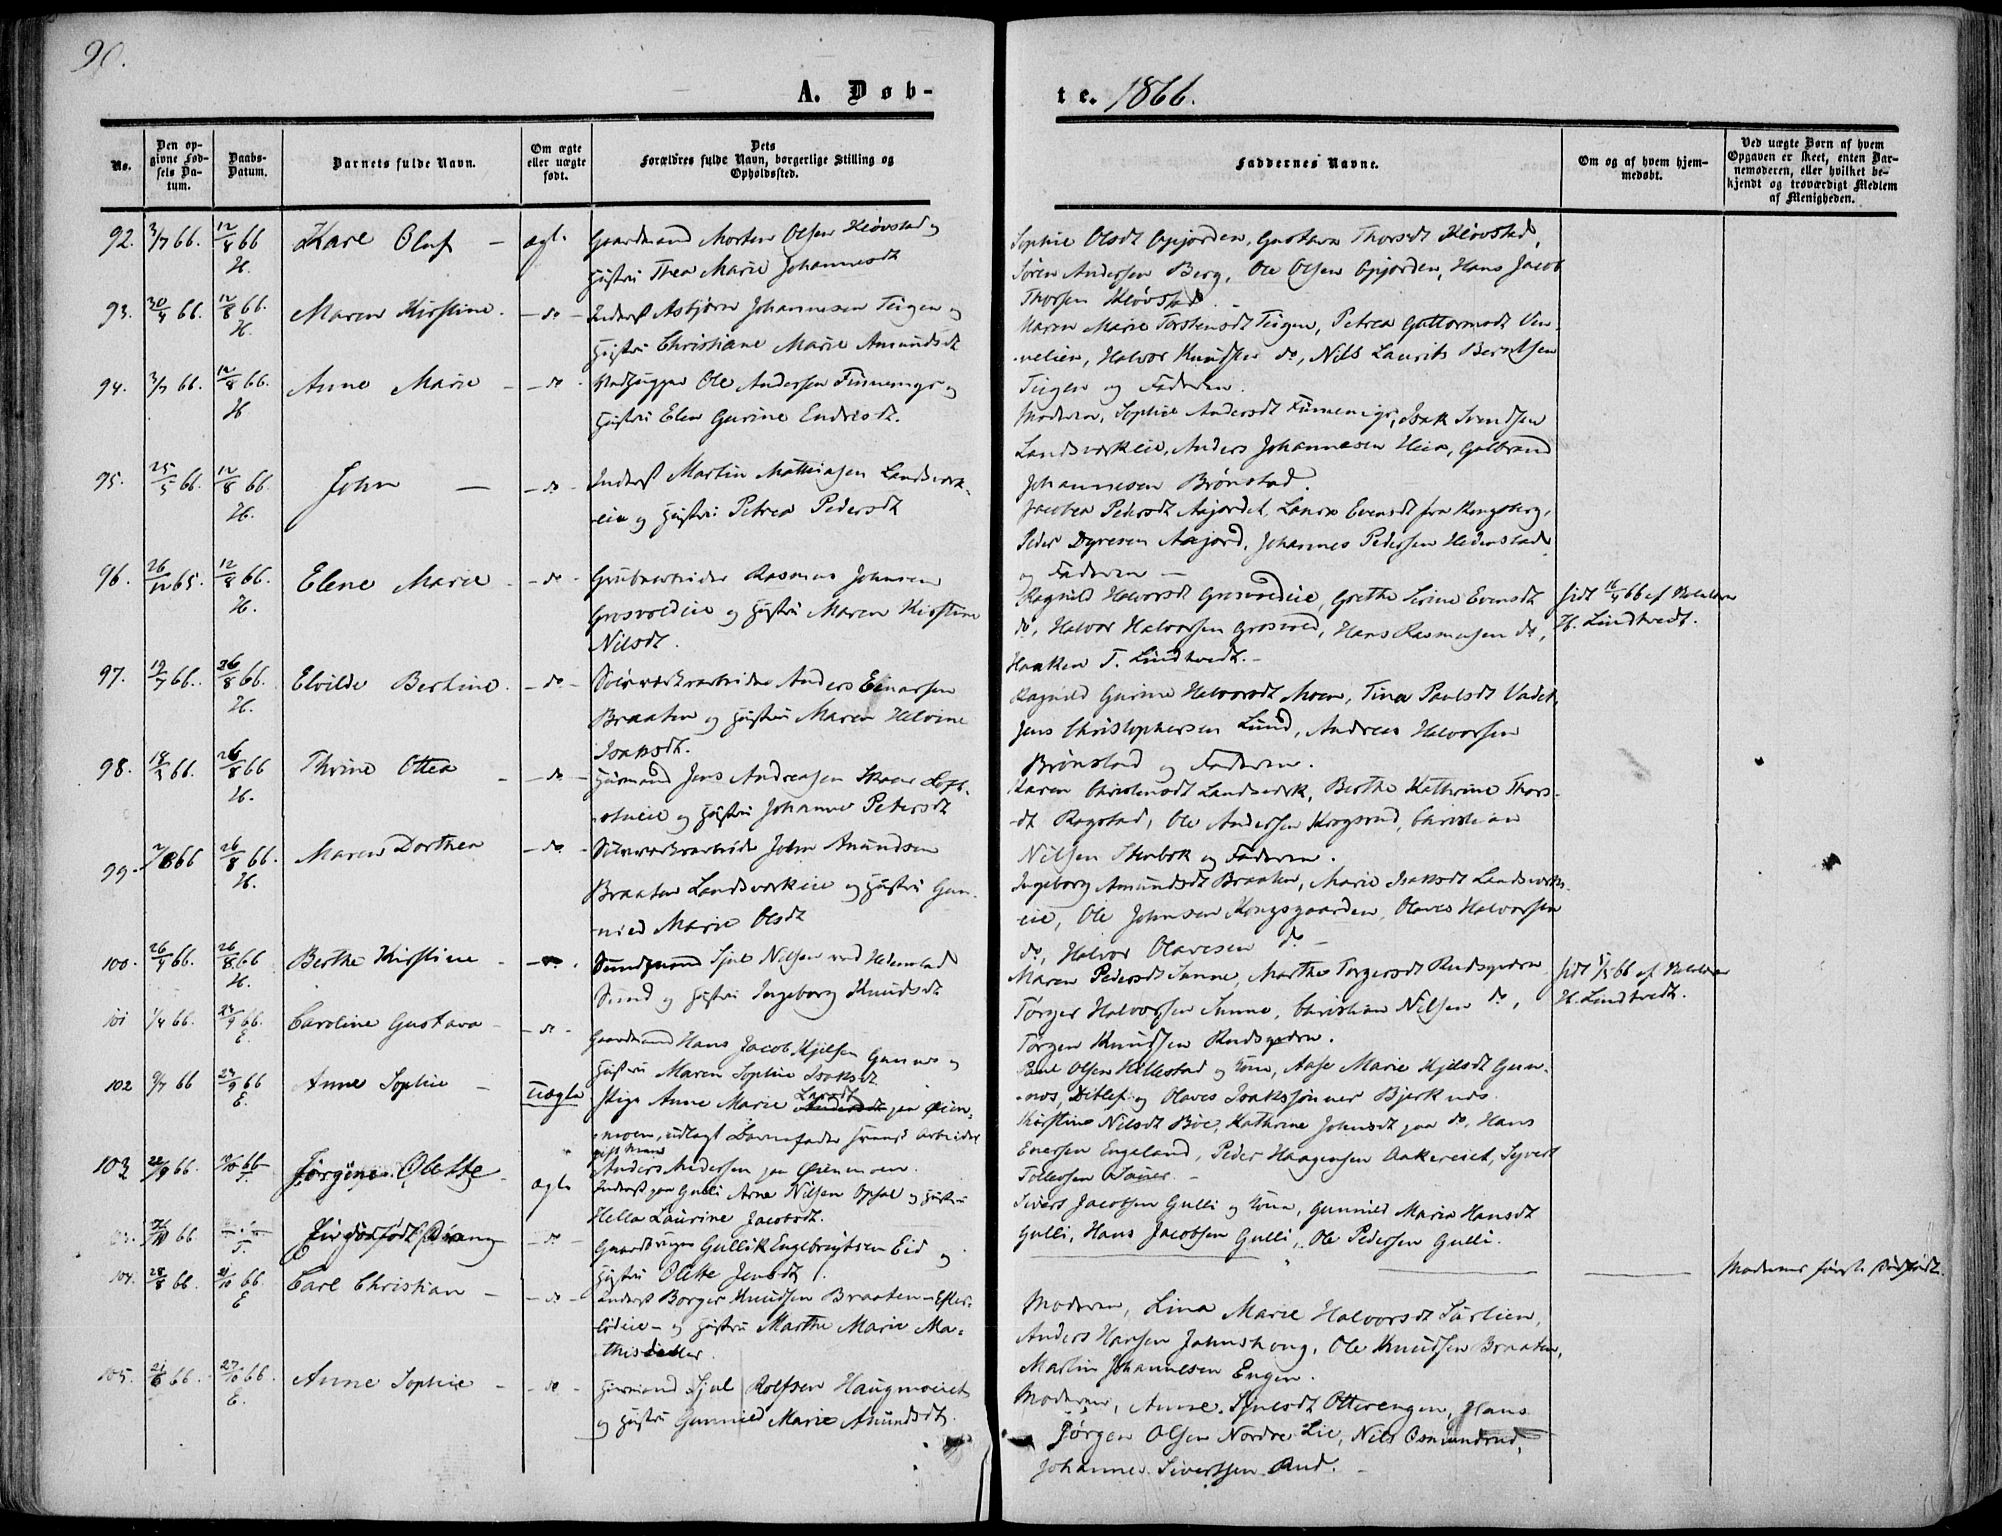 90.
A. Døb-
te. 1866.
No.
Den op-
givne Fød-
sels Da-
tum.
Daabs-
Datum.
Barnets fulde Navn.
Om ægte
eller uægte
født.
Dets
Forældres fulde Navn, borgerlige Stilling og
Opholdssted.
Faddernes Navne.
Om og af hvem hjem-
medøbt.
Ved uægte Børn af hvem
Opgaven er skeet, enten Bar-
nemoderen, eller hvilket be-
kjendt og troværdigt Medlem
af Menigheden.
92. 3/7 66. 12/8 66 H. Kare Oluf — ægt. Gaardmand Morten Olsen Kløvstad og
Hustru Thea Marie Johannesdt
Sophie Olsdt Gpjorden, Gustava Thorsdt Kløvstad,
Søren Andersen Berg, Ole Olsen Gpjorden, Hans Jacob
Thorsen Kløvstad. —
93. 30/4 66. 12/8 66. H. Maren Kirstine. — do — Inderst Asbjørn Johannesen Teigen og
Hustru Christiane Marie Amundsdt
Maren Marie Torstensdt Teigen, Petrea Guttormsdt Ven-
nelien, Halvor Knudsen do, Nils Laurits Berntsen
Teigen og Faderen.
94. 3/7 66. 12/8 66. H Anne Marie — — do — Ole Andersen Finnemyr og
Hustru Elen Gurine Endresdt.
Moderen, Sophie Andersdt Finnemyr, Isak Svendsen
Landsverkeie, Anders Johannesen Heia, Gulbrand
Johannesen Brønstad.
95. 25/5 66. 12/8 66. H. John — — do — Inderst Martin Mathiasen Landsverk-
eie og Hustru Petrea Pedersdt
Jacobea Pedersdt Aasjordet, Laura Evensdt fra Kongsberg,
Peder Dyresen Aasjord, Johannes Pedersen Hedenstad
og Faderen —
96. 26/12 65. 12/8 66. H. Elene Marie — — do — Grubearbeider Rasmus Johnsen
Grosvoldeie og Hustru Maren Kirstine
Nilsdt.
Ragnild Halvorsdt Grosvoldeie, Grethe Serine Evensdt
do, Halvor Halvorsen Grosvold, Hans Rasmusen do,
Haaken T. Lindtvedt. —
16/4 66 af
H. Lindtvedt.
97. 19/7 66. 26/8 66. H. Elvilde Bertine. — do — Sølvverksarbeider Anders Einarsen
Braaten og Hustru Maren Helvine
Isaksdt.
Ragnild Gurine Halvorsdt Moen, Tina Paulsdt Vadet,
Jens Christophersen Lund, Andreas Halvorsen
Brønstad og Faderen.
98. 18/3 66. 26/8 66 H. Thrine Othea — — do — Huusmand Jens Andreasen Skaar
og Hustru Johanne Petersdt
Karen Christensdt Landsverk, Berthe Kathrine Thors-
dt Rogstad, Ole Andersen Krogsrud, Christian
Nilsen Stenbek og Faderen.
99. 2/8 66 26/8 66. H. Maren Dorthea — do — Sølvverksarbeider John Amundsen
Braaten Landsverkeie og Hustru Gun-
nild Marie Olsdt
Ingeborg Amundsdt Braaten, Marie Isaksdt Landsverks-
eie, Ole Johnsen Kongsgaarden, Olaves Halvorsen
do, Halvor Olavesen do —
100. 26/4 66. 26/8 66 H. Berthe Kirstine — — do — Sundmand Sjul Nilsen ved Hedenstad
Sund og Hustru Ingeborg Knudsdt
Maren Pedersdt Sunne, Marthe Torgersdt Rudsgrden
Torger Halvorsen Sunne, Christian Nilsen do,
Torgen Knudsen Rudsgrden.
1/5 66 af
H. Lindtvedt.
101 1/4 66. 23/9 66. E. Caroline Gustava — — do — Gaardmand Hans Jacob Kjelsen Gunnes og
Hustru Maren Sophie Isaksdt
Paul Olsen Hillestad og Kone, Aase Marie Kjelsdt Gun-
nes, Ditlef og Olaves Isakssønner Bjerknes.
102 9/7 66 23/9 66 E. Anne Sophie — Uægte Pige Anne Marie Larsdt paa Øien-
moen, udlagt Barnefader Arbeider
gift Mand
Anders Andersen paa Øienmoen.
Kirstine Nilsdt Bøe, Kathrine Johnsdt paa do, Hans
Enersen Engeland, Peder Haagensen Aakereiet, Syvert
Tollefsen
103 22/9 66. 14/10 66 Jørgine Olette — ægte Inderst paa Gulli Arne Nilsen Opsal og Hustru
Hella Laurine Jacobsdt.
Sivert Jacobsen Gulli og Kone, Gunnild Marie Hansdt
Gulli, Hans Jacobsen Gulli, Ole Pedersen Gulli.
66 Et dødfødt Dreng — do — Gaardbruger Gullik Engebregtsen Eid og
Hustru Olette Jensdt.
Moderens første Dødfødt.
104. 28/8 66. 21/10 66 E Carl Christian — — do — Inderst Borger Knudsen Braaten —
og Hustru Marthe Marie Ma-
thisdatter.
Moderen, Lina Marie Halvorsdt Surlien,
Anders Hansen Jahnshoug, Ole Knudsen Braaten,
Martin Johannesen Engen.
105. 21/8 66. 27/10 66. E. Anne Sophie — — do — Huusmand Sjul Rolfsen Haugmoeiet
og Hustru Gunnild Marie Amundsdt.
Moderen, Anne Sjulsdt Otterengen, Hans
Jørgen Olsen Nordre Lie, Nils Osmundrud,
Johannes Sivertsen Rud. —